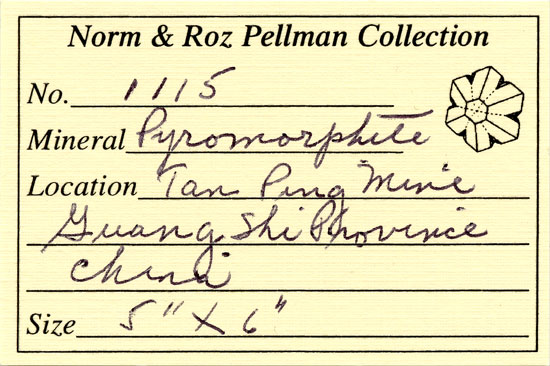 Norm & Roz Pellman Collection
No. 1115
Mineral Pyromorphite
Location Tan Ping Mine
Guang Shi Province
China
Size 5" X 6"